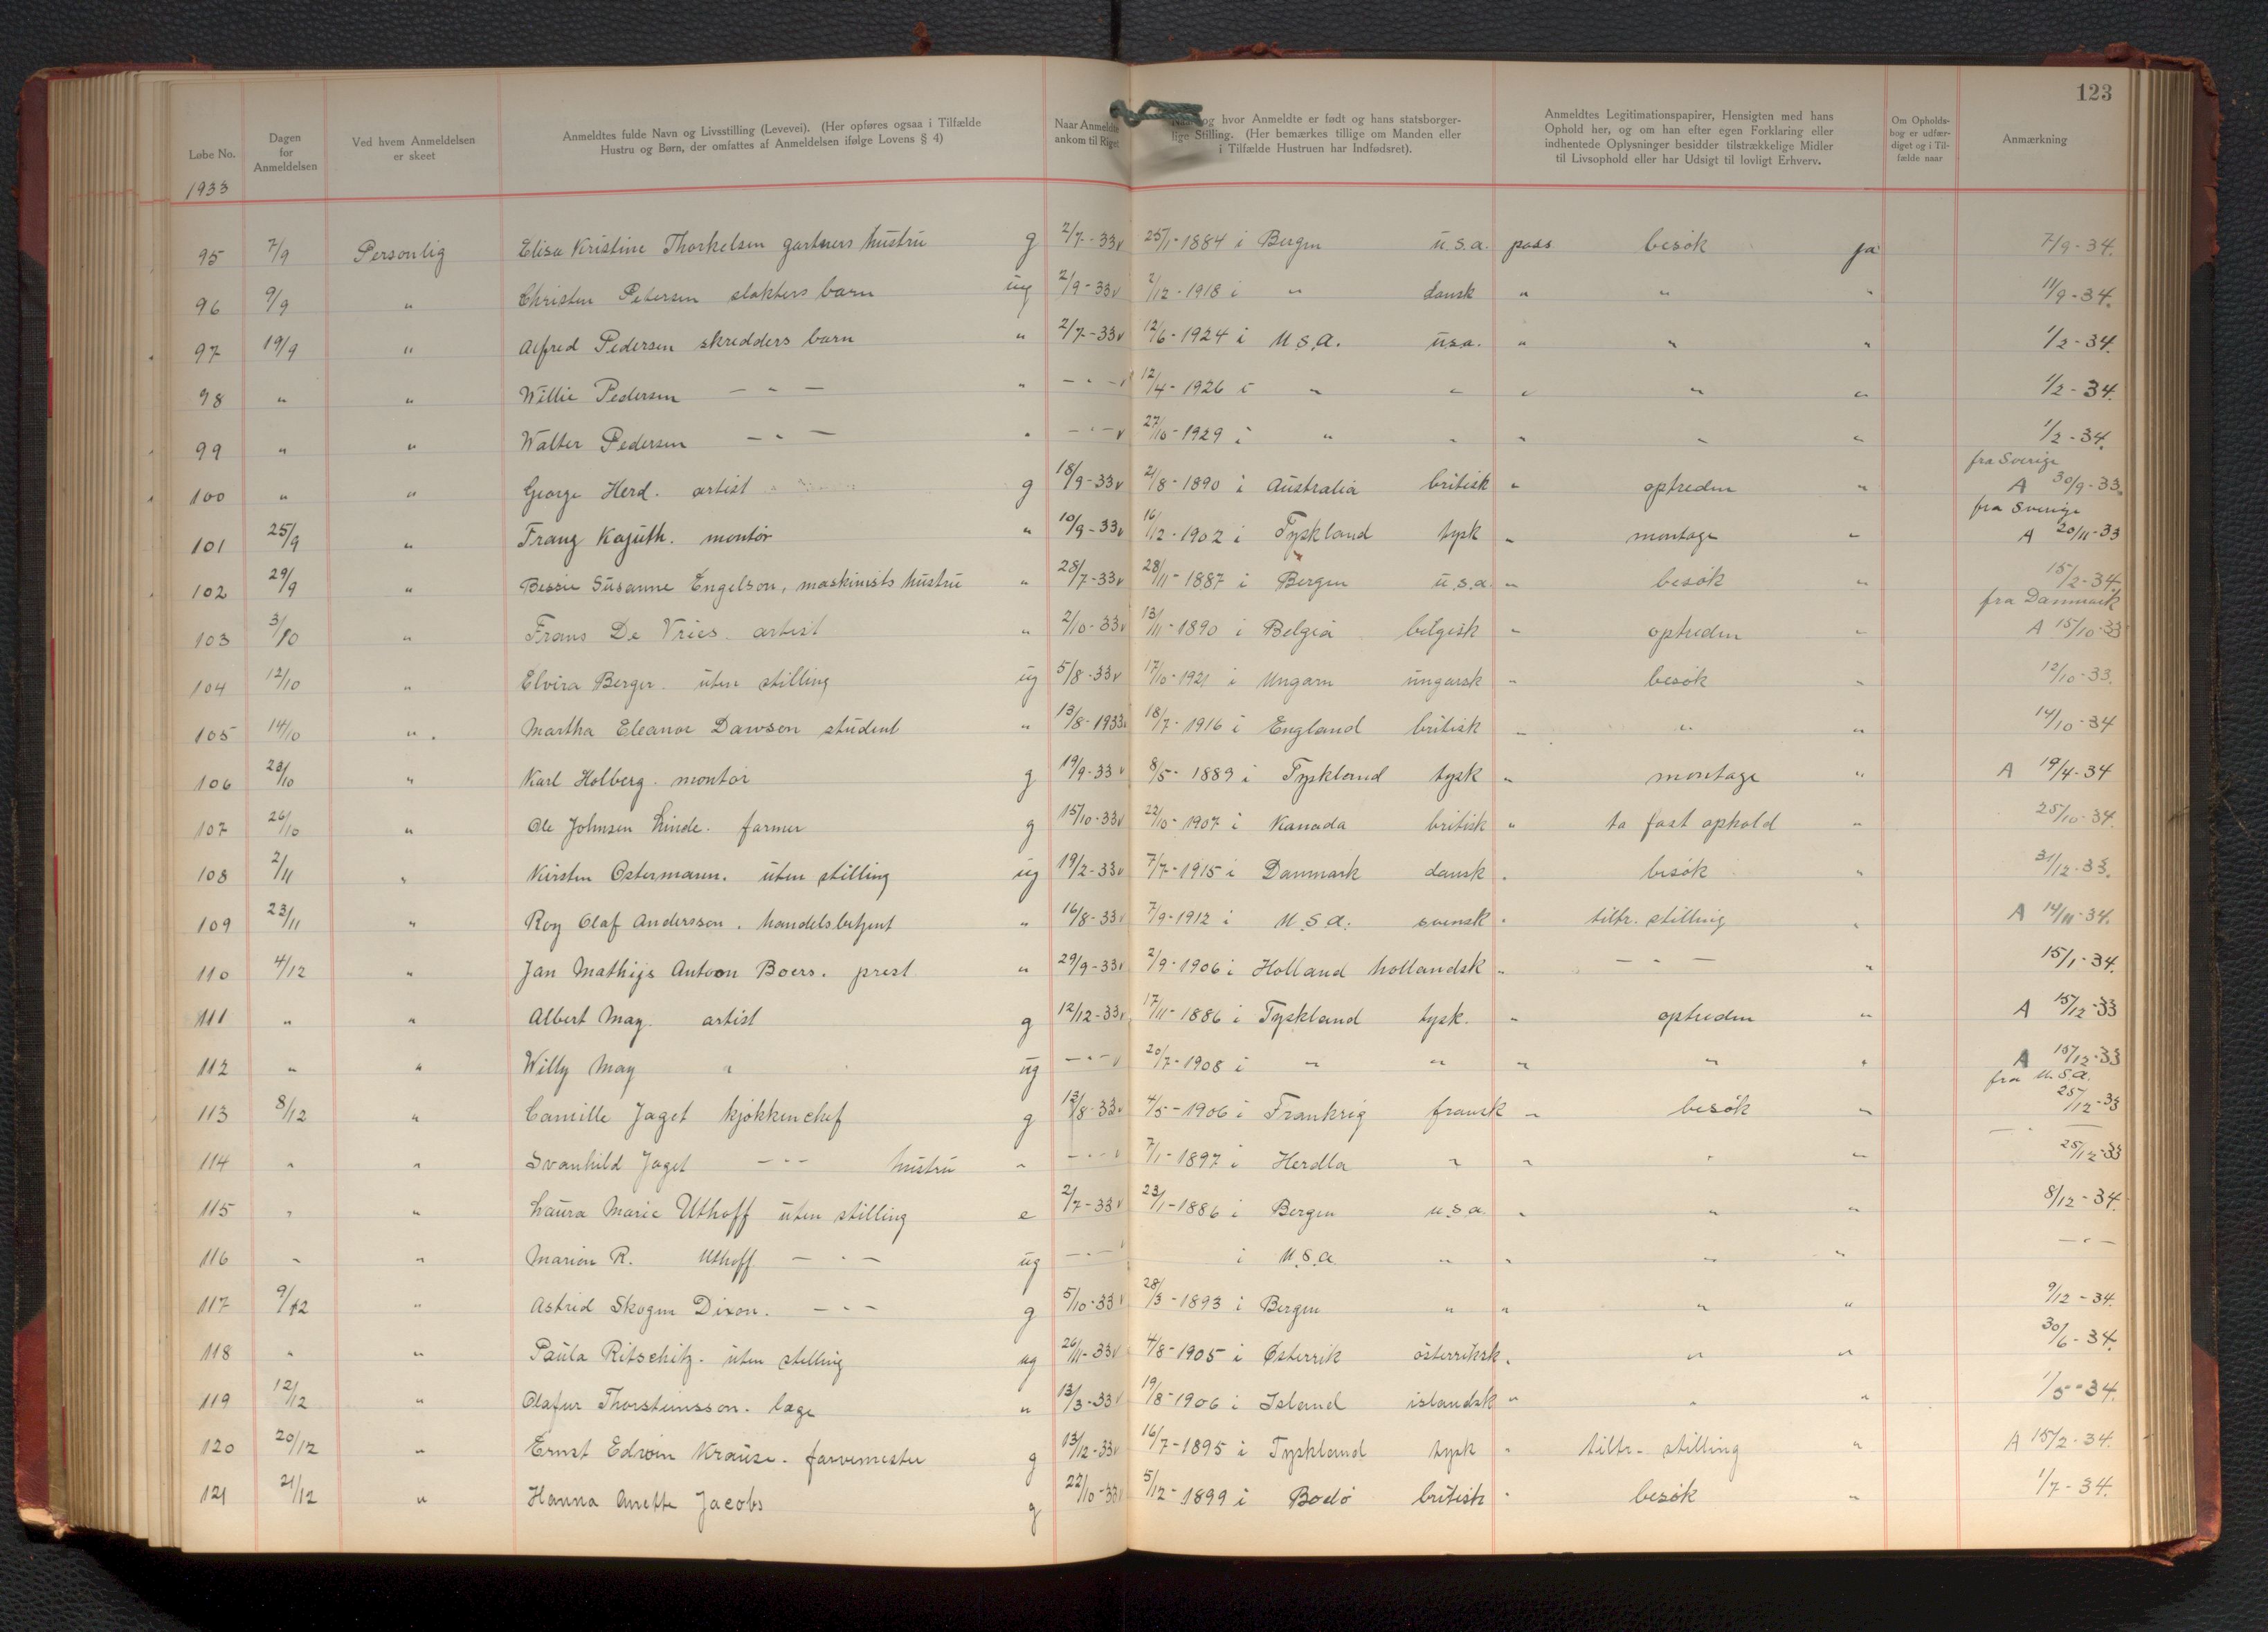 123
Løbe No.
Dagen for Anmeldelsen
Ved hvem Anmeldelsen er skeet
Anmeldtes fulde Navn og Livsstilling (Levevei). (Her opføres ogsaa i Tilfælde Hustru og Børn, der omfattes af Anmeldelsen ifølge Lovens § 4)
Naar Anmeldte ankom til Riget
og hvor Anmeldte er født og hans statsborgerlige Stilling. (Her bemærkes tillige om Manden eller i Tilfælde Hustruen har Indfødsret).
Anmeldtes Legitimationspapirer, Hensigten med hans Ophold her, og om han efter egen Forklaring eller indhentede Oplysninger besidder tilstrækkelige Midler til Livsophold eller har Udsigt til lovligt Erhverv.
Om Opholdsbog er udfærdiget og i Tilfælde naar
Anmærkning
1933
95 7/9 Personlig Elisa Kristine Thorkelsen gartners hustru g 2/7-33 v 25/1-1884 i Bergen u.s.a. pass besök ja 7/9-34.
96 9/9 " Christen Petersen slakters barn ug 2/9-33 v 2/12-1918 i " dansk " " " 11/9-34.
97 19/9 " Alfred Pedersen skredders barn " 2/7-33 v 12/6-1924 i U.S.A. u.s.a. " " " 1/2-34.
98 " " Willie Pedersen — " — " — " — v 12/4-1926 i " " " " " 1/2-34.
99 " " Walter Pedersen — " — " — " — v 27/10-1929 i " " " " " 1/2-34.
100 " " George Herd. artist g 18/9-33 v 2/8-1890 i Australia britisk " optreden " fra Sverige A 30/9-33.
101 25/9 " Franz Kajuth. montör " 10/9-33 v 16/12-1902 i Tyskland tysk " montage " fra Sverige A 20/11-33
102 29/9 " Bessie Susanne Engelson, maskinists hustru " 28/7-33 v 28/11-1887 i Bergen u.s.a. " besök " 15/2-34.
103 3/10 " Frans De Vries. artist " 2/10-33 v 13/11-1890 i Belgia belgisk " optreden " fra Danmark A 15/10-33
104 12/10 " Elvira Berger. uten stilling ug 5/8-33 v 17/10-1921 i Ungarn ungarsk " besök " 12/10-33.
105 14/10 " Martha Eleanor Dawson student " 13/8-1933. 18/7-1916 i England britisk " " " 14/10-34
106 23/10 " Karl Holberg. montör g 19/9-33 v 8/5-1889 i Tyskland tysk " montage " A 19/4-34
107 26/10 " Ole Johnsen Linde. farmer g 15/10-33 v 22/10-1907 i Kanada britisk " ta fast ophold " 25/10-34.
108 2/11 " Kirsten Ostermann. uten stilling ug 19/2-33 v 7/7-1915 i Danmark dansk " besök " 31/12-33.
109 23/11 " Roy Olaf Andersson. handelsbetjent " 16/8-33 v 7/9-1912 i U.S.A. svensk " tiltr. stilling " A 14/11-34.
110 4/12 " Jan Mathijs Antoon Boers. prest " 29/9-33 v 2/9-1906 i Holland hollandsk " — " — " 15/1-34.
111 " " Albert May. artist g 12/12-33 v 17/11-1886 i Tyskland tysk. " optreden " A 15/12-33
112 " " Willy May " ug — " — v 20/7-1908 i " " " " " A 15/12-33
113 8/12 " Camille Jaget kjökkenchef g 13/8-33 v 4/5-1906 i Frankrig fransk " besök " fra U.S.A. 25/12-33
114 " " Svanhild Jaget — " — hustru " — " — v 7/1-1897 i Herdla " " " " — " — 25/12-33
115 " " Laura Marie Uthoff uten stilling e 2/7-33 v 23/1-1886 i Bergen u.s.a. " " " 8/12-34.
116 " " Marion R. Uthoff — " — ug — " — v i U.S.A. " " " " — " —
117 9/12 " Astrid Skogen Dixon. — " — g 5/10-33 v 28/3-1893 i Bergen " " " " 9/12-34.
118 " " Paula Ritschitz. uten stilling ug 26/11-33 v 4/8-1905 i Østerrik österriksk. " " 30/6-34.
119 12/12 " Olafur Thorsteinsson. læge " 13/3-33 v 19/8-1906 i Island islandsk " " " 1/5-34.
120 20/12 " Ernst Edwin Krause. farvemester g 13/12-33 v 16/7-1895 i Tyskland tysk " tiltr. stilling " A 15/2-34.
121 21/12 " Hanna Anette Jacobs g 22/10-33 v 5/12-1899 i Bodö britisk " besök " 1/7-34.